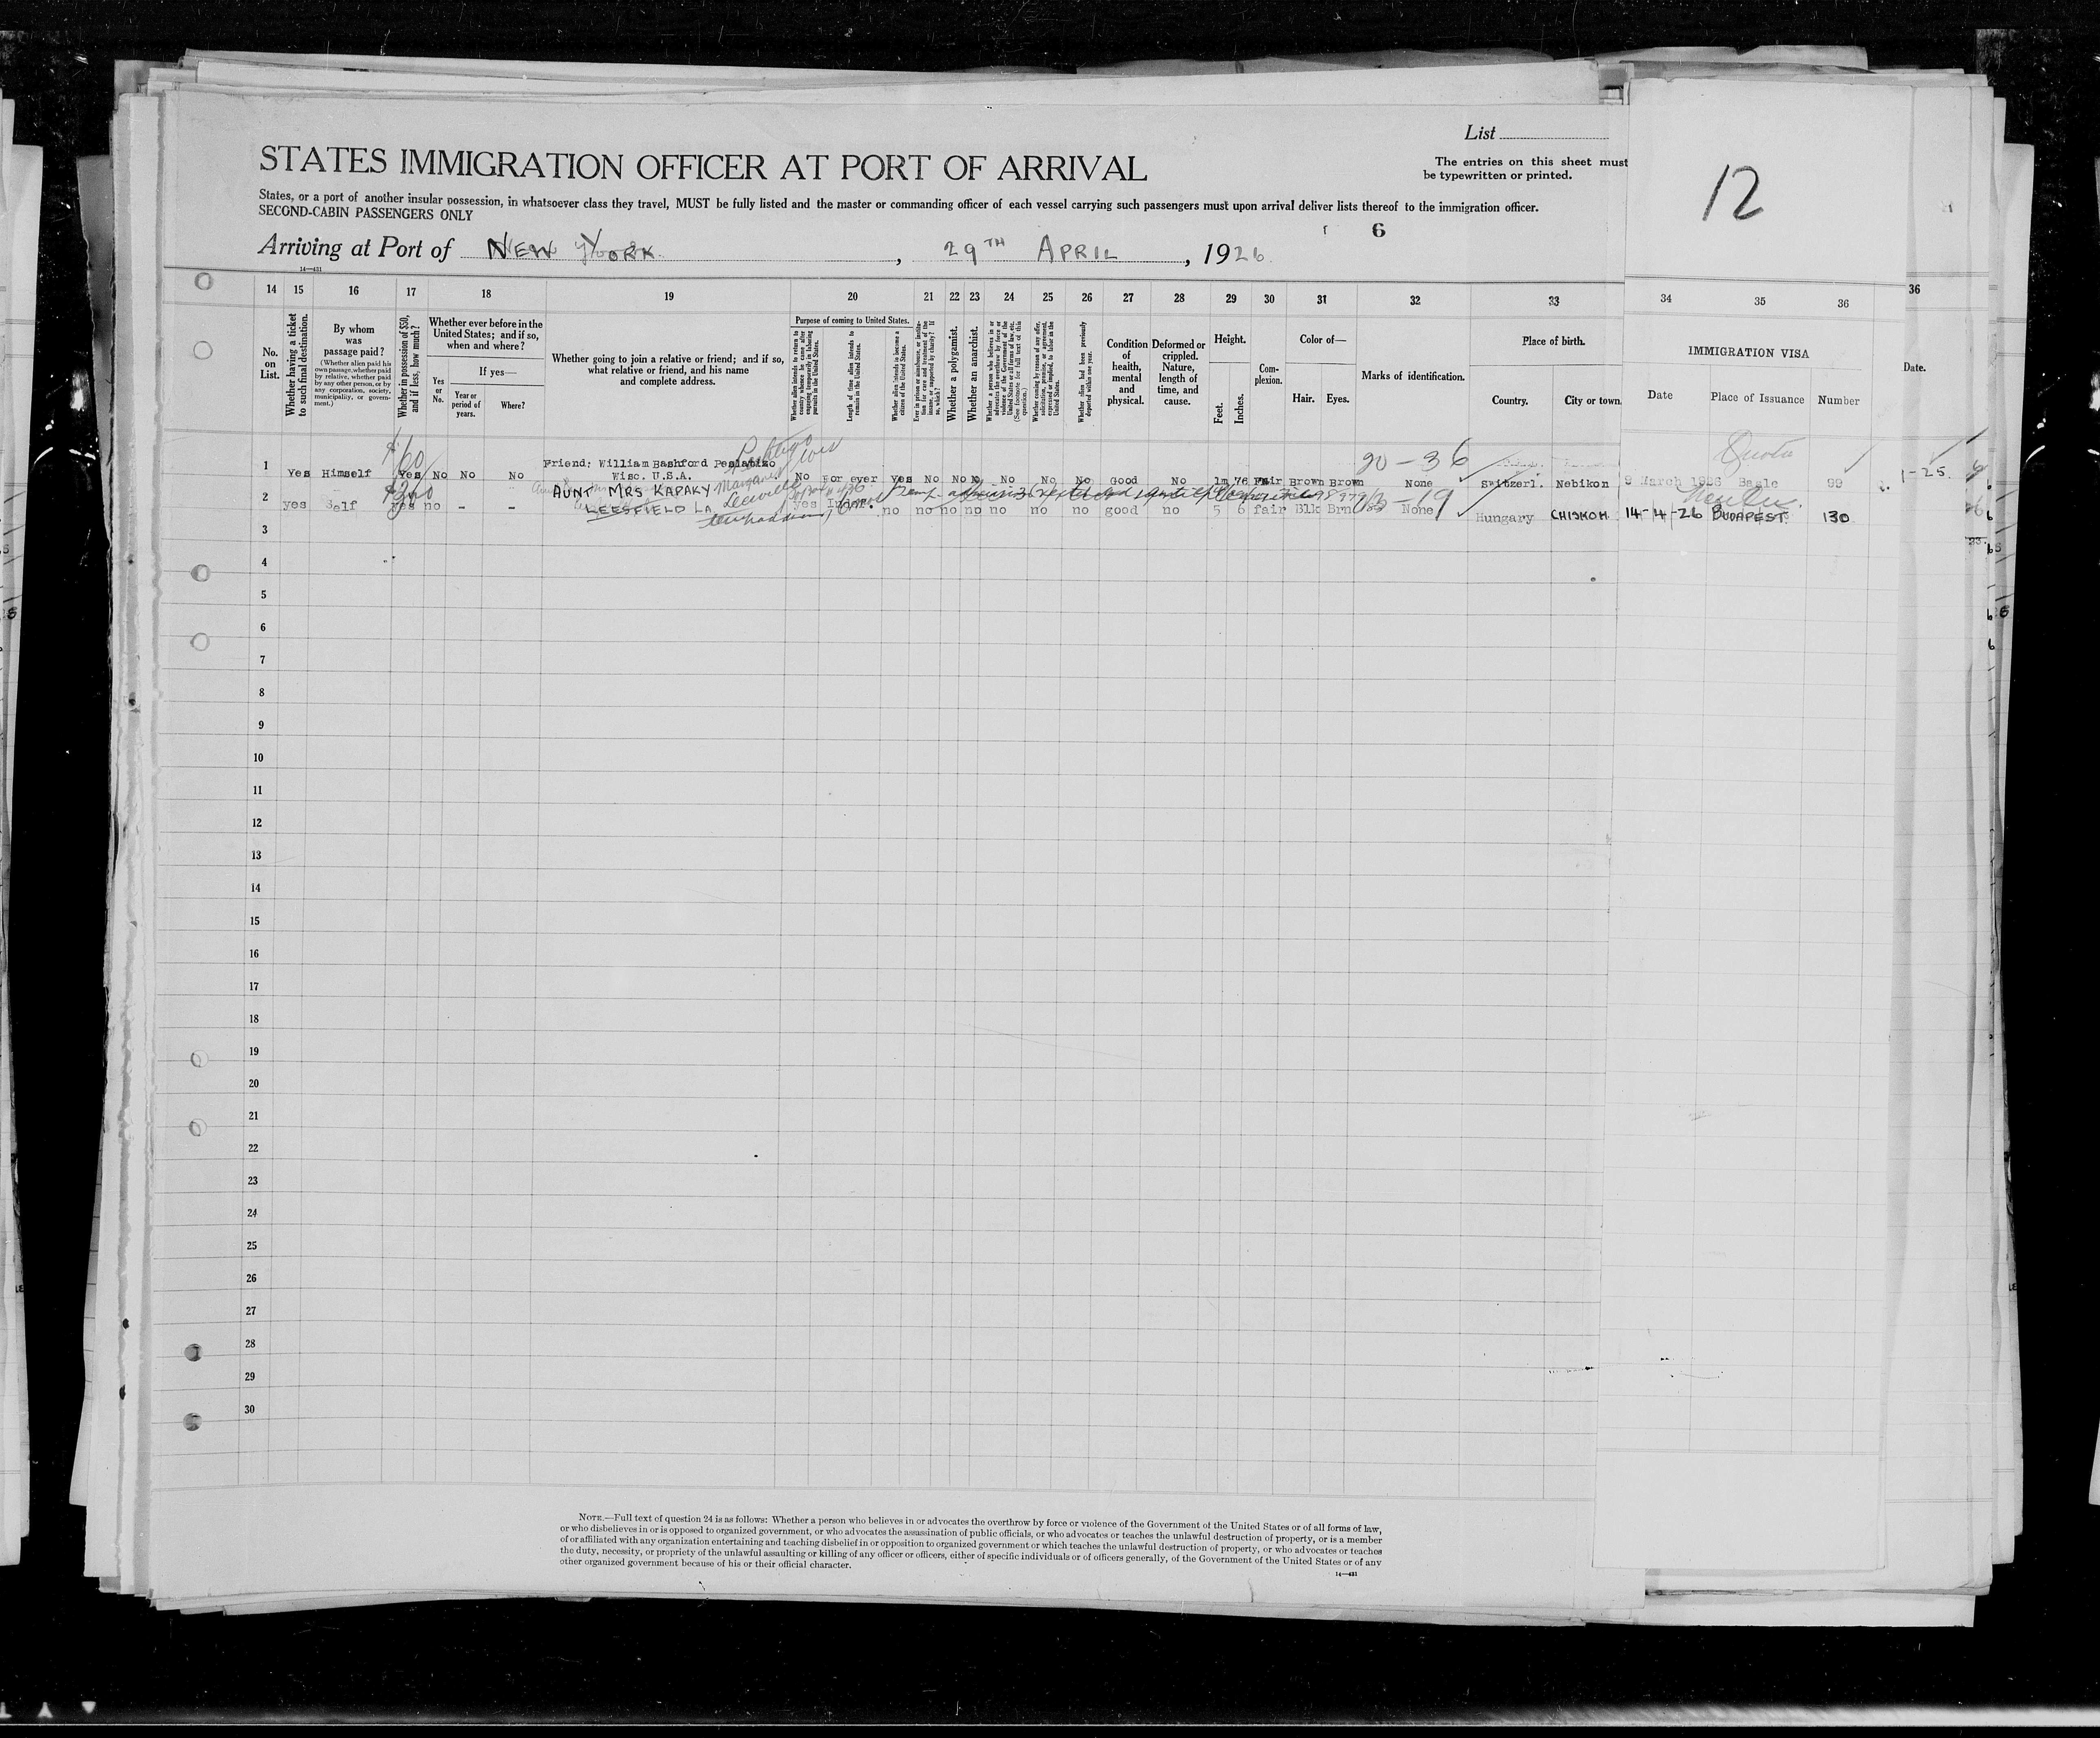 List
STATES IMMIGRATION OFFICER AT PORT OF ARRIVAL
The entries on this sheet must
be typewritten or printed.
12
States, or a port of another insular possession, in whatsoever class they travel, MUST be fully listed and the master or commanding officer of each vessel carrying such passengers must upon arrival deliver lists thereof to the immigration officer.
SECOND-CABIN PASSENGERS ONLY
6
Arriving at Port of NEW YORK, 29TH APRIL, 1926
14—431
14 15 16 17 18 19 20 21 22 23 24 25 26 27 28 29 30 31 32 33 34 35 36 36
No. on List.
Whether having a ticket to such final destination.
By whom was passage paid?
(Whether alien paid his own passage, whether paid by relative, whether paid by any other person, or by any corporation, society, municipality, or government.)
Whether in possession of $50, and if less, how much?
Whether ever before in the United States; and if so, when and where?
Yes or No.
If yes—
Year or period of years.
Where?
Whether going to join a relative or friend; and if so, what relative or friend, and his name and complete address.
Purpose of coming to United States.
Whether alien intends to return to country whence he came after engaging temporarily in laboring pursuits in the United States.
Length of time alien intends to remain in the United States.
Whether alien intends to become a citizen of the United States.
Ever in prison or almshouse, or institution for care and treatment of the insane, or supported by charity? If so, which?
Whether a polygamist.
Whether an anarchist.
Whether a person who believes in or advocates the overthrow by force or violence of the Government of the United States or all forms of law, etc. (See footnote for full text of this question.)
Whether coming by reason of any offer, solicitation, promise, or agreement, expressed or implied, to labor in the United States.
Whether alien had been previously deported within one year.
Condition of health, mental and physical.
Deformed or crippled. Nature, length of time, and cause.
Height.
Feet. Inches.
Complexion.
Color of—
Hair. Eyes.
Marks of identification.
Place of birth.
Country. City or town.
IMMIGRATION VISA
Date Place of Issuance Number
Date.
Quota
20-36
1 Yes Himself Yes No No No Friend; William Bashford Wisc. U.S.A. No For ever Yes No No No No No No Good No 1m 76 Fair Brown Brown None Switzerl. Nebikon 9 March 1926 Basle 99
1-25
2 yes Self yes no - - AUNT MRS KAPAKY LEESFIELD LA Margaret Leeville yes Indef. no no no no no no no good no 5 6 fair Blk Brn None Hungary CHISKOH 14-4-26 BUDAPEST 130
3
4
5
6
7
8
9
10
11
12
13
14
15
16
17
18
19
20
21
22
23
24
25
26
27
28
29
30
NOTE.—Full text of question 24 is as follows: Whether a person who believes in or advocates the overthrow by force or violence of the Government of the United States or of all forms of law,
or who disbelieves in or is opposed to organized government, or who advocates the assassination of public officials, or who advocates or teaches the unlawful destruction of property, or is a member
of or affiliated with any organization entertaining and teaching disbelief in or opposition to organized government or which teaches the unlawful destruction of property, or who advocates or teaches
the duty, necessity, or propriety of the unlawful assaulting or killing of any officer or officers, either of specific individuals or of officers generally, of the Government of the United States or of any
other organized government because of his or their official character.
14—431